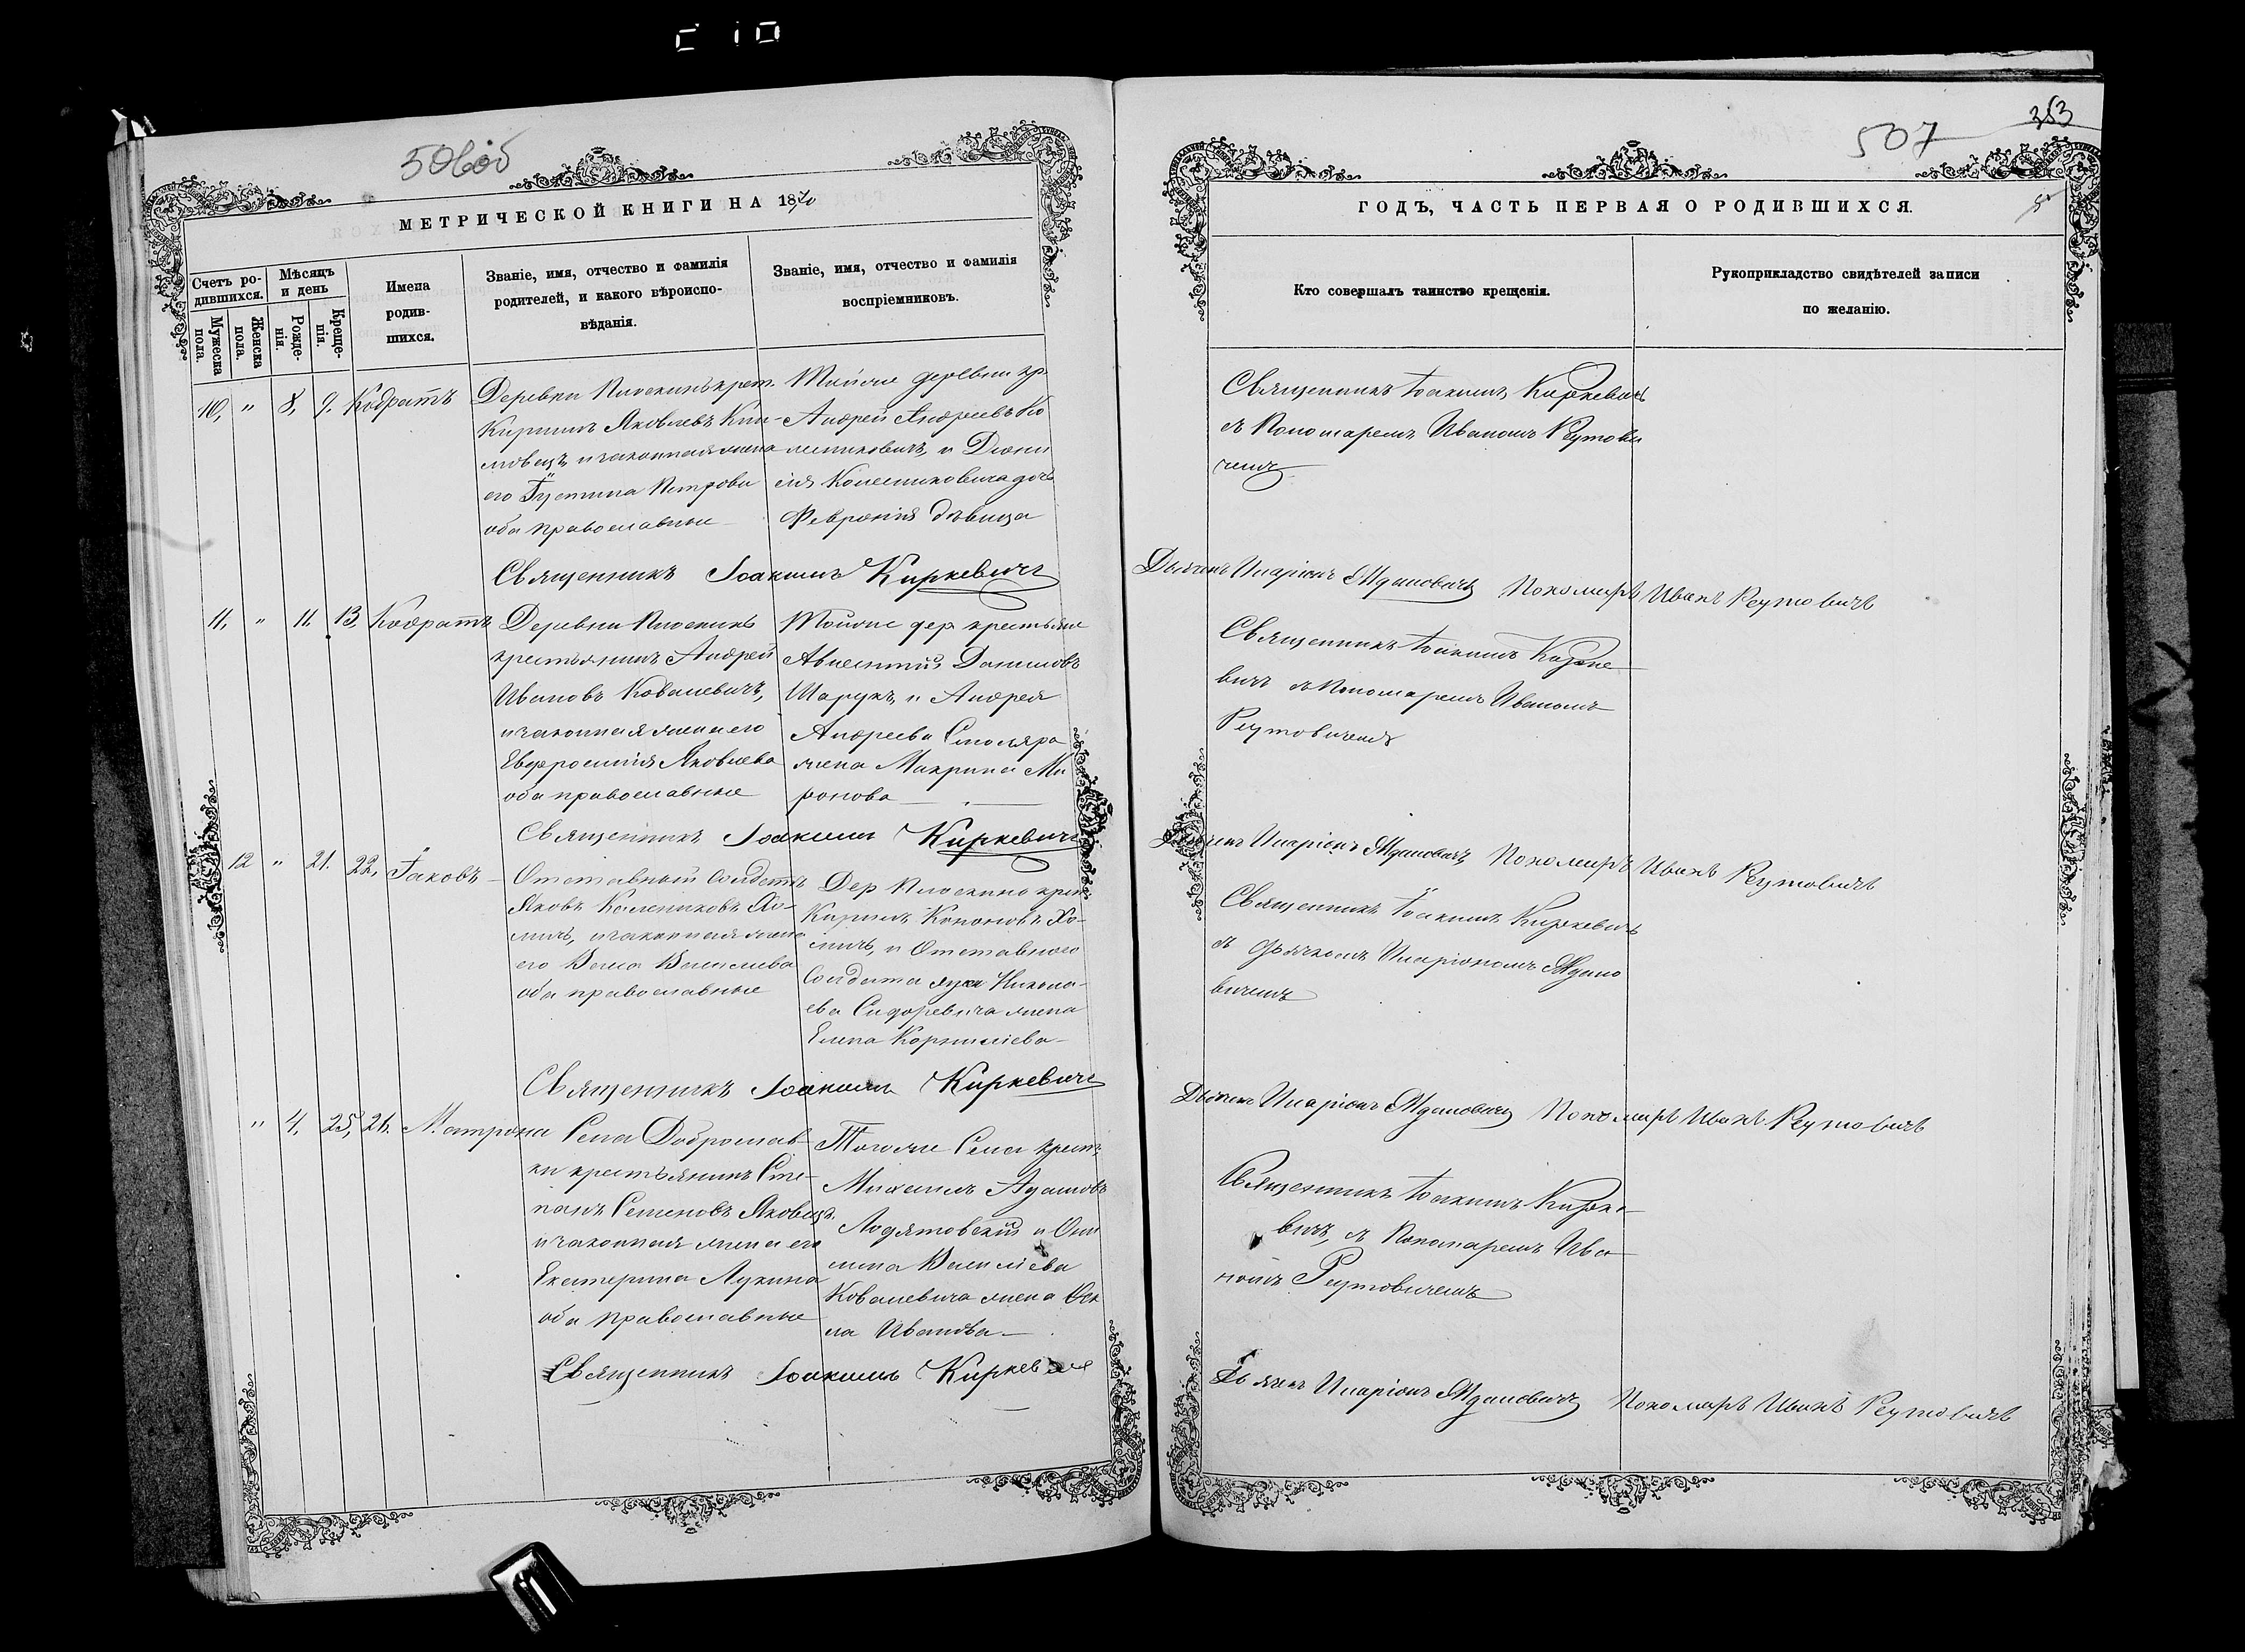 506об
МЕТРИЧЕСКОЙ КНИГИ НА 1870
Счетъ ро-
дившихся.
Мѣсяцъ
и день
Мужеска
пола.
Женска
пола.
Рожде-
нія.
Креще-
нія.
Имена
родив-
шихся.
Званіе, имя, отчество и фамилія
родителей, и какого вѣроиспо-
вѣданія.
Званіе, имя, отчество и фамилія
воспріемниковъ.
10, " 8, 9. Кодратъ
Деревни Плоскинь крест.
Кириллъ Яковлевъ Кли-
мовецъ и законная жена
его Іустина Петрова
оба православные
Тойже деревни кр.
Андрей Андреевъ Ко
лесниковичъ, и
Колесниковича дочь
Февронія дѣвица
Священникъ Іоакимъ Киркевичъ
11, " 11. 13, Кодратъ
Деревни Плоскинь
крестьянинъ Андрей
Ивановъ Ковалевичъ,
и законная жена его
Евфросинія Яковлева
оба православные
Тойже дер крестьяне
Авксентій Даниловъ
Шарукъ, и Андрея
Андреева Столяра
жена Макрина Ми
ронова
Священникъ Іоакимъ Киркевичъ
12 " 21. 22, Іаковъ
Отставный Солдатъ
Яковъ Калениковъ Хо-
мичъ, и законная жена
его Васса Васильева
оба православные
Дер Плоскинь крест
Кириллъ Кононовъ Хо-
мичъ, и Отставного
Солдата Луки Никола-
ева Сидоревича жена
Елена Корниліева
Священникъ Іоакимъ Киркевичъ
" 4, 25, 26. Матрона
Села Доброслав
ки крестьянинъ Сте-
панъ Семеновъ Яковецъ
и законная жена его
Екатерина Лукина
оба православные
Тогоже Села крест,
Михаилъ Адамовъ
и
Василіева
Ковалевича жена Фек
ла Иванова
Священникъ Іоакимъ Киркевичъ
507
353
ГОДЪ, ЧАСТЬ ПЕРВАЯ О РОДИВШИХСЯ.
Кто совершалъ таинство крещенія.
Рукоприкладство свидѣтелей записи
по желанію.
Священникъ Іоакимъ Киркевичъ
съ Пономаремъ Иваномъ Реутови
чемъ
Дьячекъ Иларіонъ Ждановичъ Пономарь Иванъ Реутовичъ
Священникъ Іоакимъ Кирке
вичъ съ Пономаремъ Иваномъ
Реутовичемъ
Дьячекъ Иларіонъ Ждановичъ Пономарь Иванъ Реутовичъ
Священникъ Іоакимъ Киркевичъ
съ Дьячкомъ Иларіономъ Ждано
вичемъ
Дьячекъ Иларіонъ Ждановичъ Пономарь Иванъ Реутовичъ
Священникъ Іоакимъ Кирке
вичъ, съ Пономаремъ Ива
номъ Реутовичемъ
Дьячекъ Иларіонъ Ждановичъ Пономарь Иванъ Реутовичъ